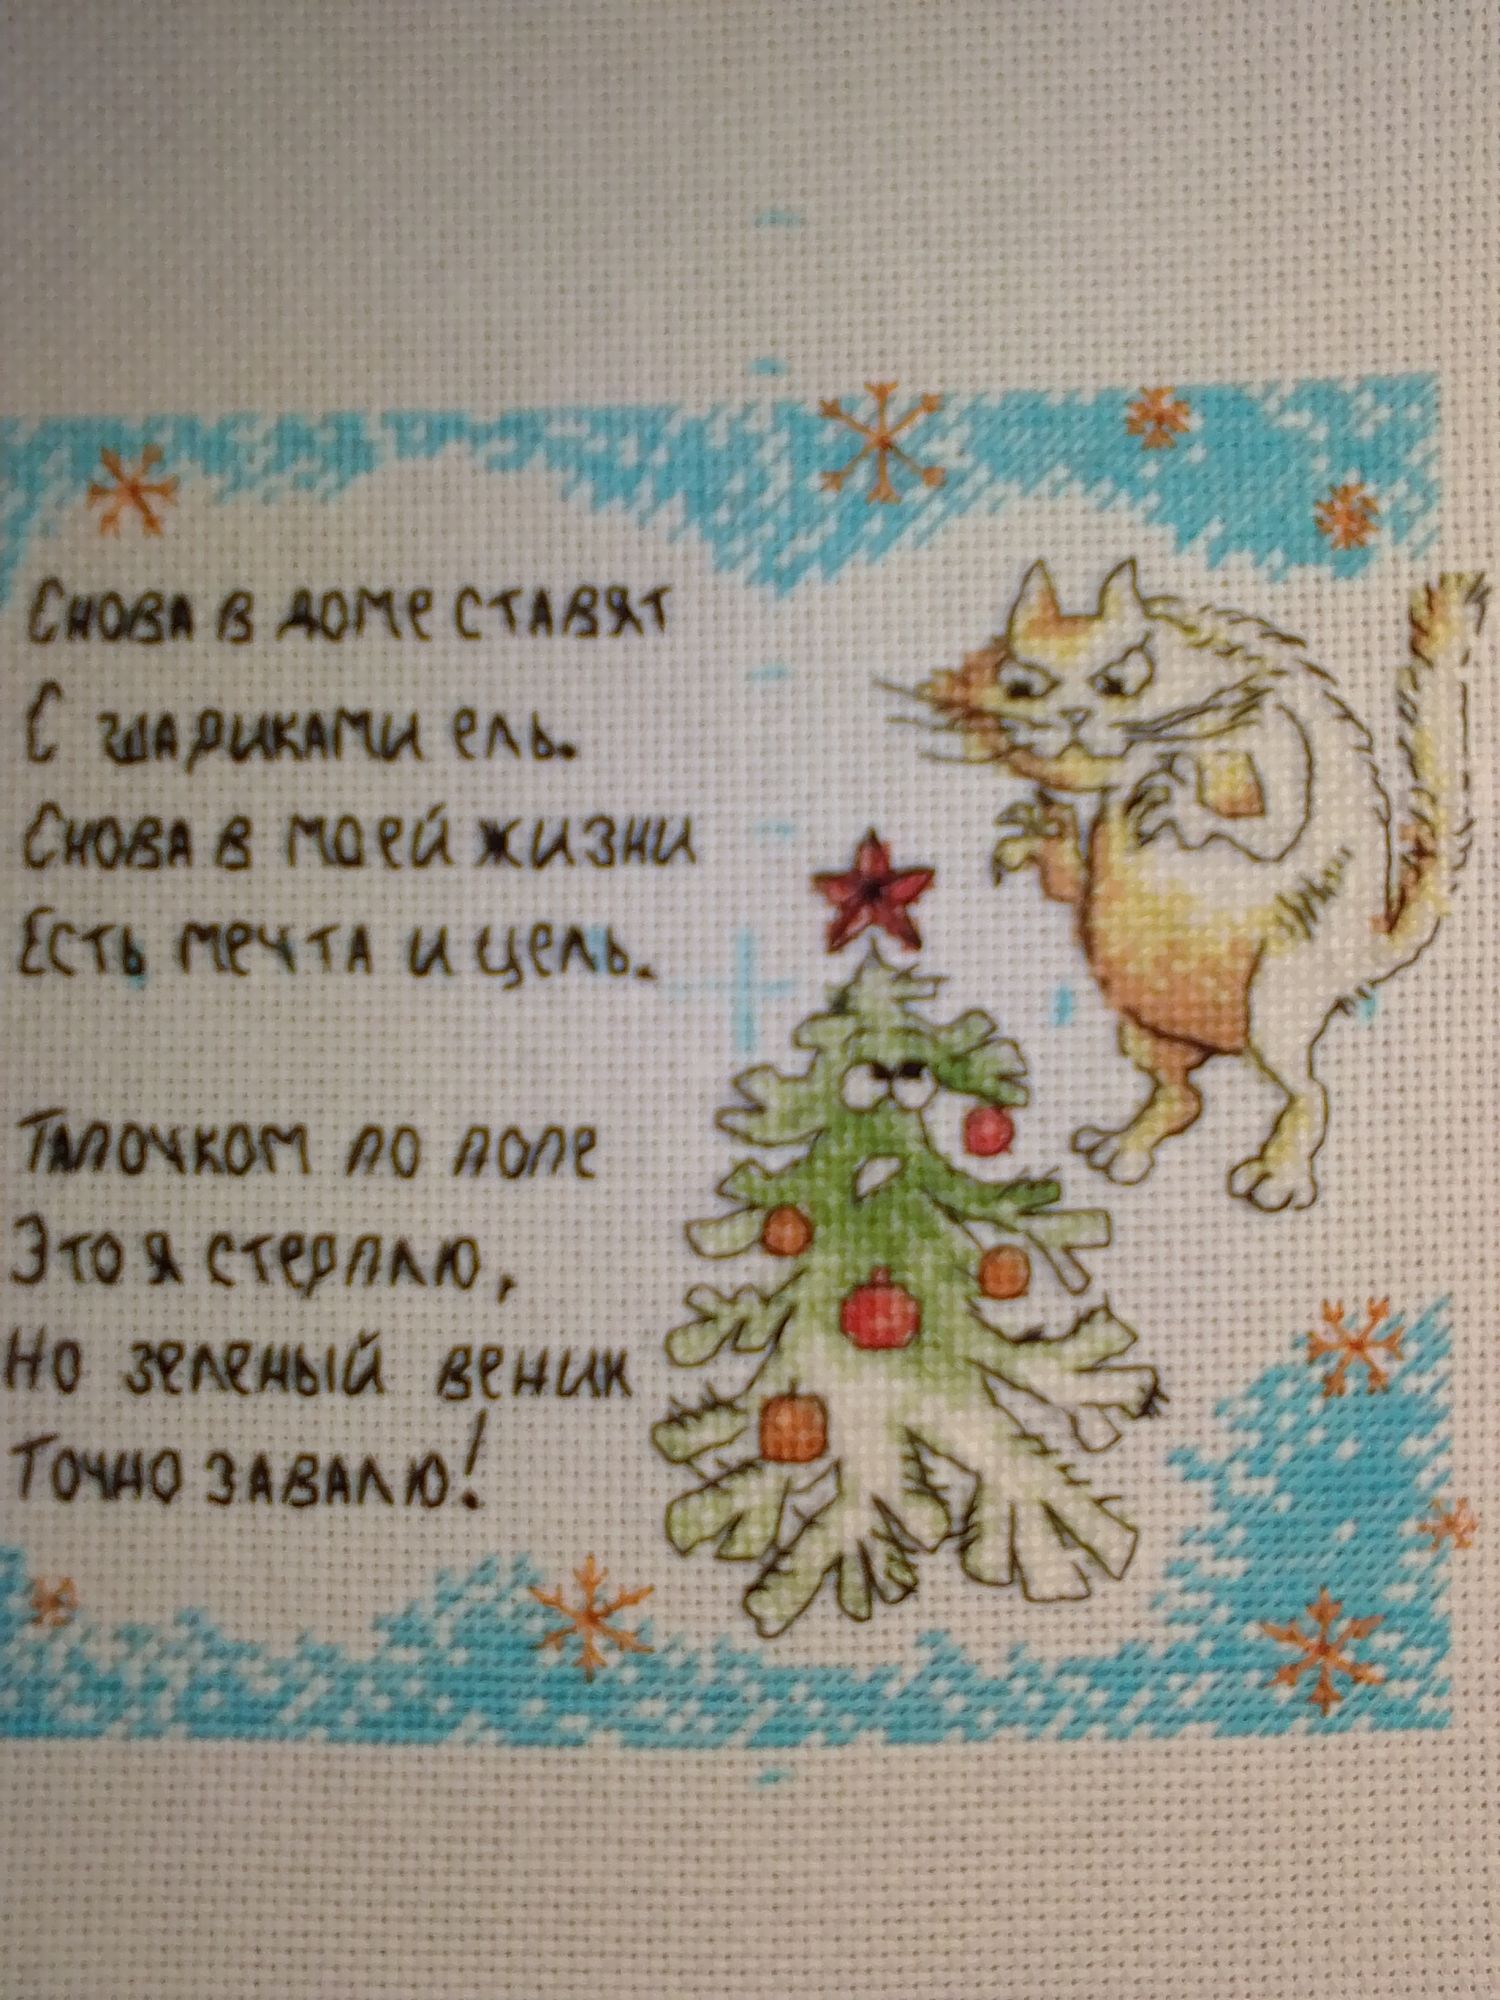 Снова в доме ставят
С шариками ель.
Снова в моей жизни
Есть мечта и цель.
Тапочком по попе
Это я стерплю,
Но зеленый веник
Точно завалю!